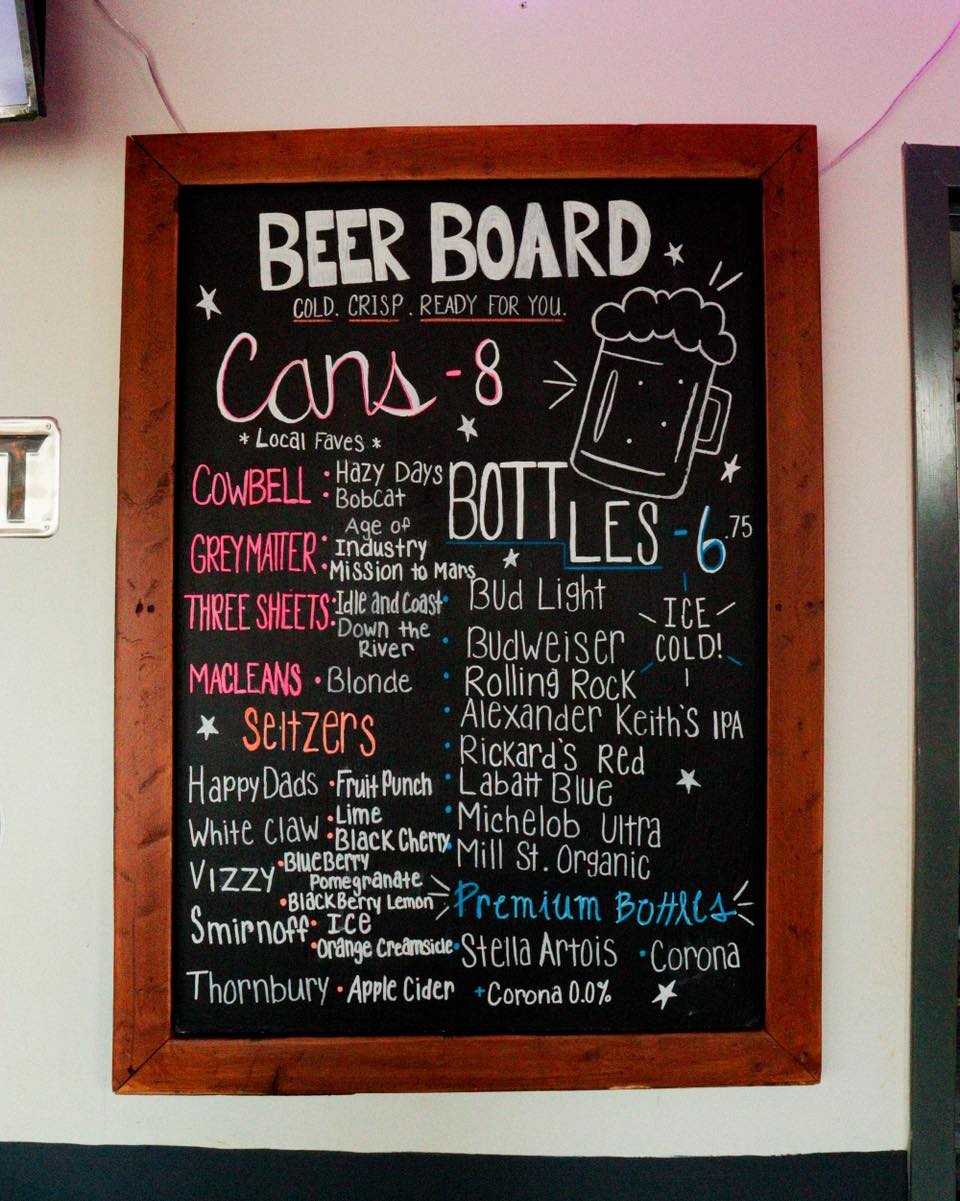 BEER BOARD
COLD. CRISP. READY FOR YOU.
Cans - 8
* Local Faves *
COWBELL : • Hazy Days
• Bobcat
GREY MATTER : • Age of
Industry
• Mission to Mars
THREE SHEETS : • Idle and Coast
Down the
River
MACLEANS • Blonde
Seltzers
Happy Dads • Fruit Punch
White Claw • Lime
• Black Cherry
Vizzy • BlueBerry
Pomegranate
• BlackBerry Lemon
Smirnoff • Ice
• Orange Creamsicle
Thornbury • Apple Cider
BOTT
LES - 6.75
ICE
COLD!
• Bud Light
• Budweiser
• Rolling Rock
• Alexander Keith's IPA
• Rickard's Red
• Labatt Blue
• Michelob Ultra
• Mill St. Organic
Premium Bottles
• Stella Artois • Corona
+ Corona 0.0%
T